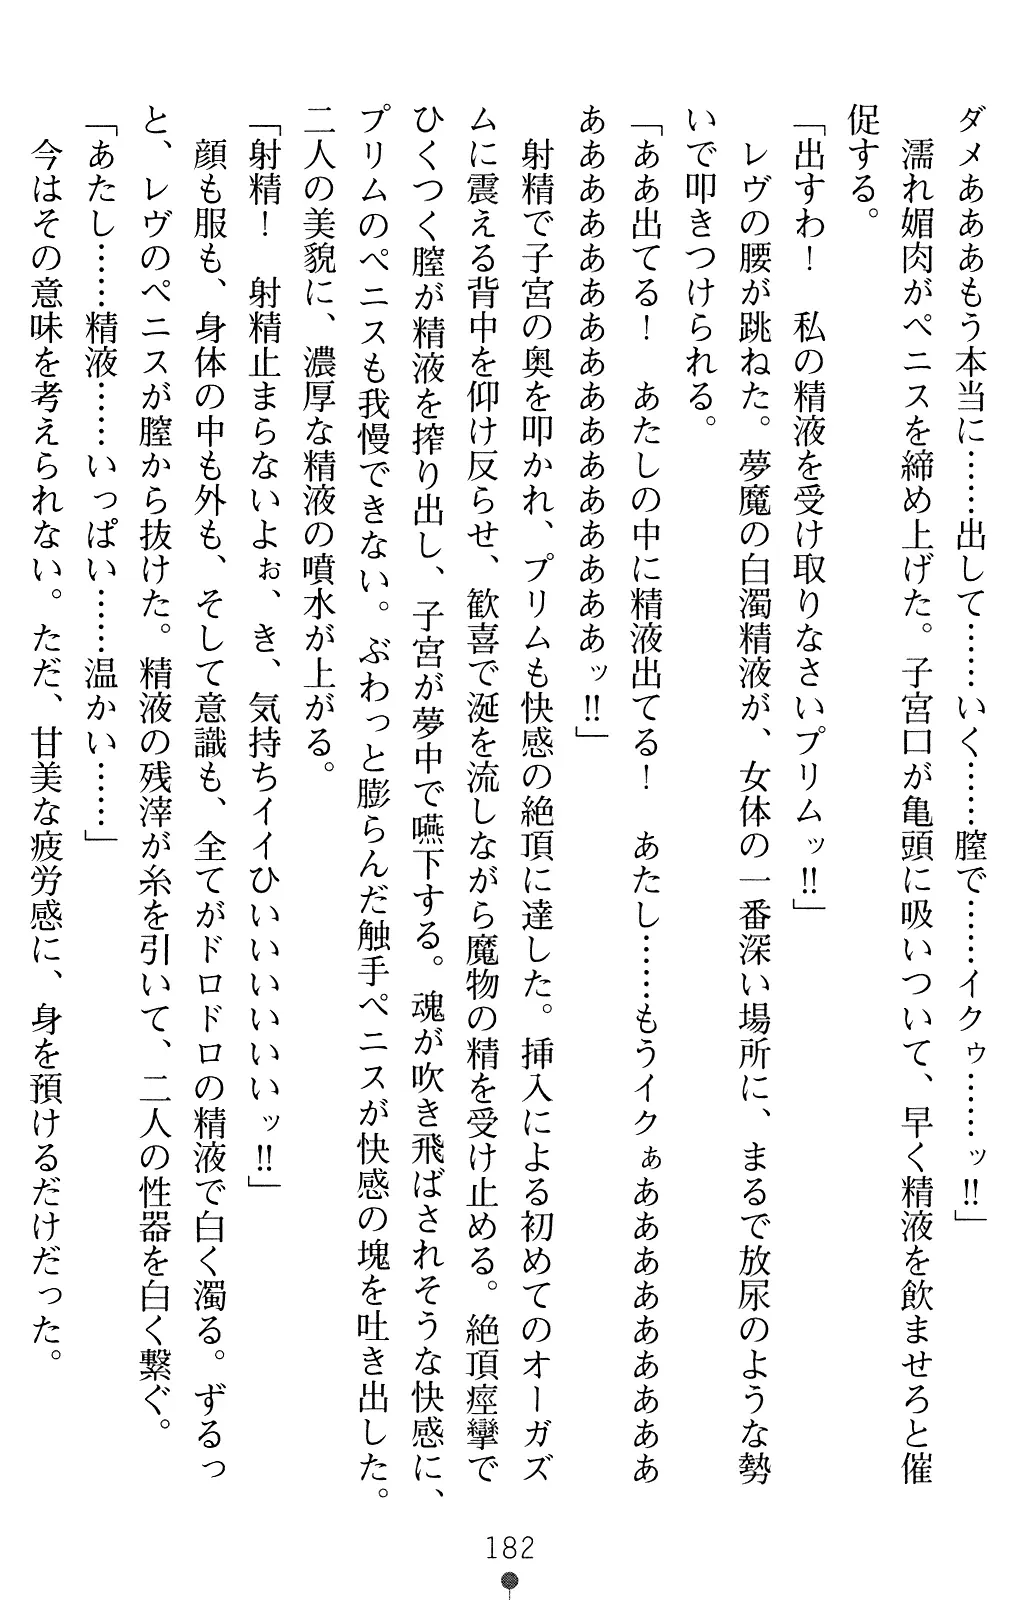 ダメあああもう本当に……出して……いく……膣で……イクゥ……ッ!!」
　濡れ媚肉がペニスを締め上げた。子宮口が亀頭に吸いついて、早く精液を飲ませろと催
促する。
「出すわ！　私の精液を受け取りなさいプリムッ!!」
　レヴの腰が跳ねた。夢魔の白濁精液が、女体の一番深い場所に、まるで放尿のような勢
いで叩きつけられる。
「ああ出てる！　あたしの中に精液出てる！　あたし……もうイクぁああああああああ
ああああああああああああああああッ!!」
　射精で子宮の奥を叩かれ、プリムも快感の絶頂に達した。挿入による初めてのオーガズ
ムに震える背中を仰け反らせ、歓喜で涎を流しながら魔物の精を受け止める。絶頂痙攣で
ひくつく膣が精液を搾り出し、子宮が夢中で嚥下する。魂が吹き飛ばされそうな快感に、
プリムのペニスも我慢できない。ぶわっと膨らんだ触手ペニスが快感の塊を吐き出した。
二人の美貌に、濃厚な精液の噴水が上がる。
「射精！　射精止まらないよぉ、き、気持ちイイひいいいいいいッ!!」
　顔も服も、身体の中も外も、そして意識も、全てがドロドロの精液で白く濁る。ずるっ
と、レヴのペニスが膣から抜けた。精液の残滓が糸を引いて、二人の性器を白く繋ぐ。
「あたし……精液……いっぱい……温かい……」
　今はその意味を考えられない。ただ、甘美な疲労感に、身を預けるだけだった。
182